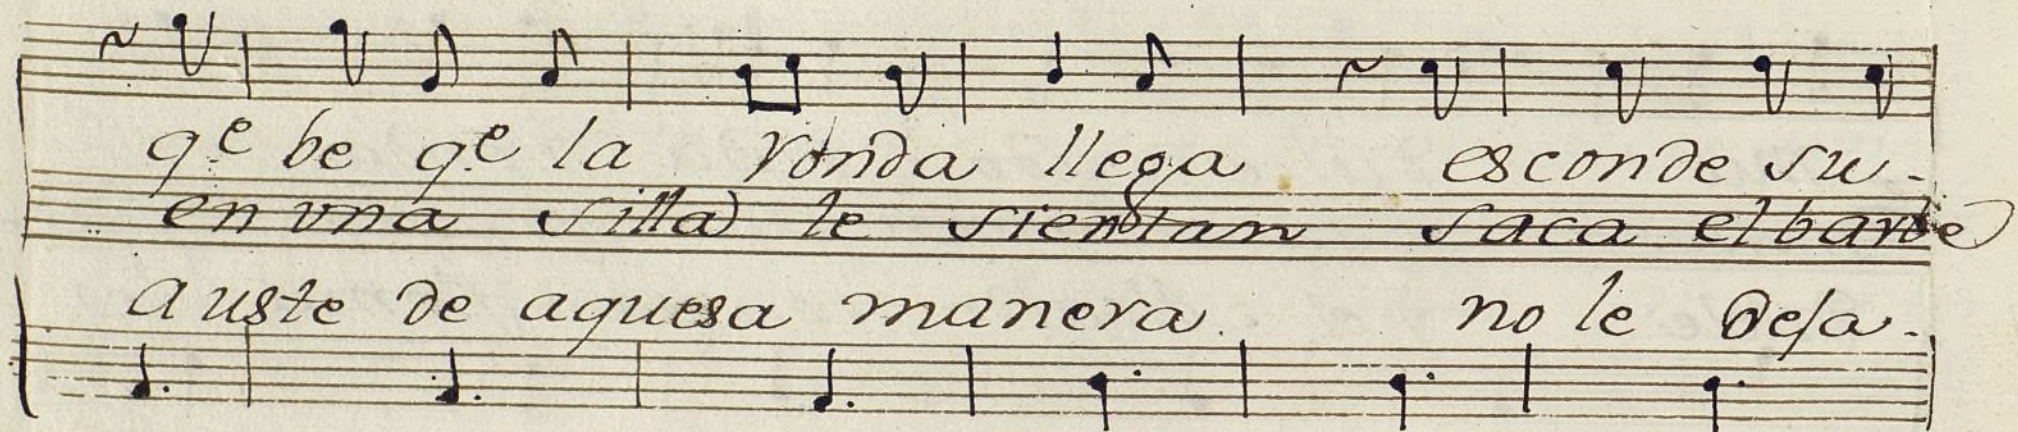 qe be qe la ronda llega esconde su-
en vna silla le sientan saca el barbe
a uste de aquesa manera. no le deja-